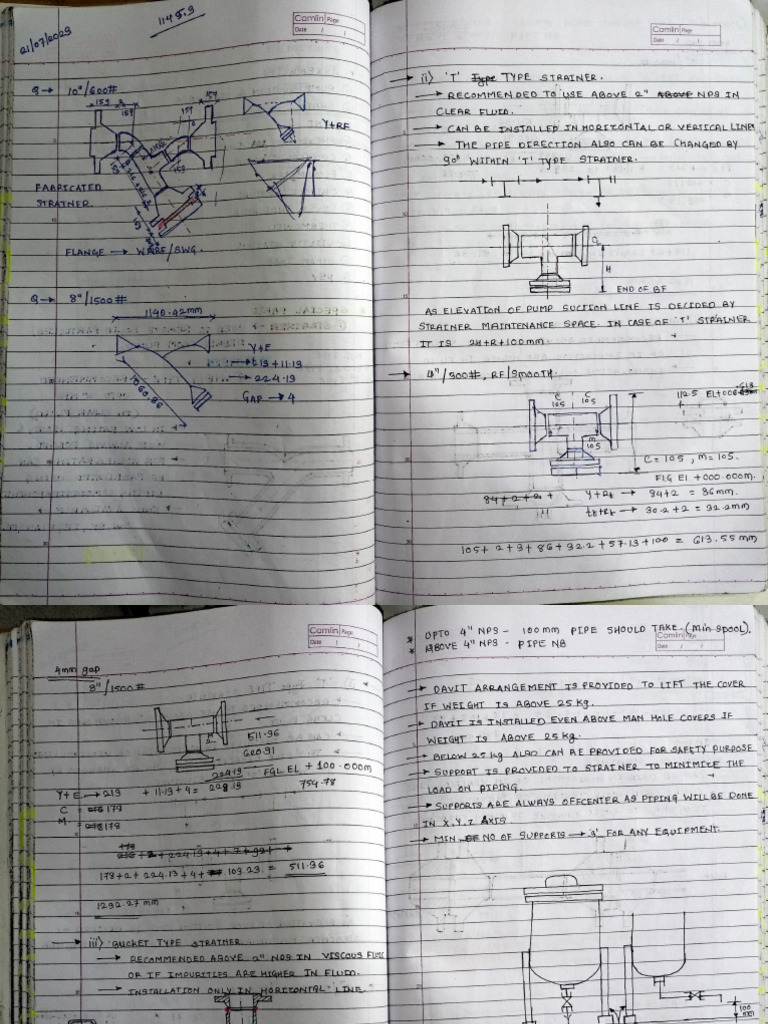 21/07/2023
1145.3
Camlin Page
Date / /
Q → 10"/600#
159 2
159
Y+RF
FABRICATED
STRAINER.
FLANGE → WNRF/SWG.
Q → 8"/1500#
1190.42mm
1060.86
Y+E
→ 213+11.13
→ 224.13
GAP → 4
Camlin Page
Date / /
→ ii) 'T' TYPE STRAINER.
→ RECOMMENDED TO USE ABOVE 2" NPS IN
CLEAR FLUID.
→ CAN BE INSTALLED IN HORIZONTAL OR VERTICAL LINE
→ THE PIPE DIRECTION ALSO CAN BE CHANGED BY
90° WITHIN 'T' TYPE STRAINER.
H
END OF BF
AS ELEVATION OF PUMP SUCTION LINE IS DECIDED BY
STRAINER MAINTENANCE SPACE. IN CASE OF 'T' STRAINER
IT IS 2H+R+100mm.
→ 4"/300#, RF/Smooth.
C C
105 105
M
105
112.5 EL+000.613
C=105, M=105.
FLG El +000.000m.
84+2+2+
Y+Rf → 84+2 = 86mm.
tf+Rf → 30.2+2 = 32.2mm
105+2+3+86+32.2+57.13+100 = 613.55mm
Camlin Page
4mm gap
8"/1500#
511.36
620.91
224.13
FGL EL +100.000m
Y+E → 213 + 11.13+4 = 228.13
754.78
C = 178
M = 178
178+2+224.13+4+ 103.23 = 511.36
1232.27mm
→ iii) BUCKET TYPE STRAINER.
→ RECOMMENDED ABOVE 2" NPS IN VISCOUS FLUID
OR IF IMPURITIES ARE HIGHER IN FLUID.
→ INSTALLATION ONLY IN HORIZONTAL LINE"
* UPTO 4" NPS - 100mm PIPE SHOULD TAKE. (Min spool).
* ABOVE 4" NPS - PIPE NB
Camlin Page
Date / /
→ DAVIT ARRANGEMENT IS PROVIDED TO LIFT THE COVER
IF WEIGHT IS ABOVE 25kg.
→ DAVIT IS INSTALLED EVEN ABOVE MAN HOLE COVERS IF
WEIGHT IS ABOVE 25kg.
→ BELOW 25kg ALSO CAN BE PROVIDED FOR SAFETY PURPOSE
→ SUPPORT IS PROVIDED TO STRAINER TO MINIMIZE THE
LOAD ON PIPING.
→ SUPPORTS ARE ALWAYS OFFCENTER AS PIPING WILL BE DONE
IN X,Y,Z AXIS.
→ MIN NO OF SUPPORTS → '3' FOR ANY EQUIPMENT.
100